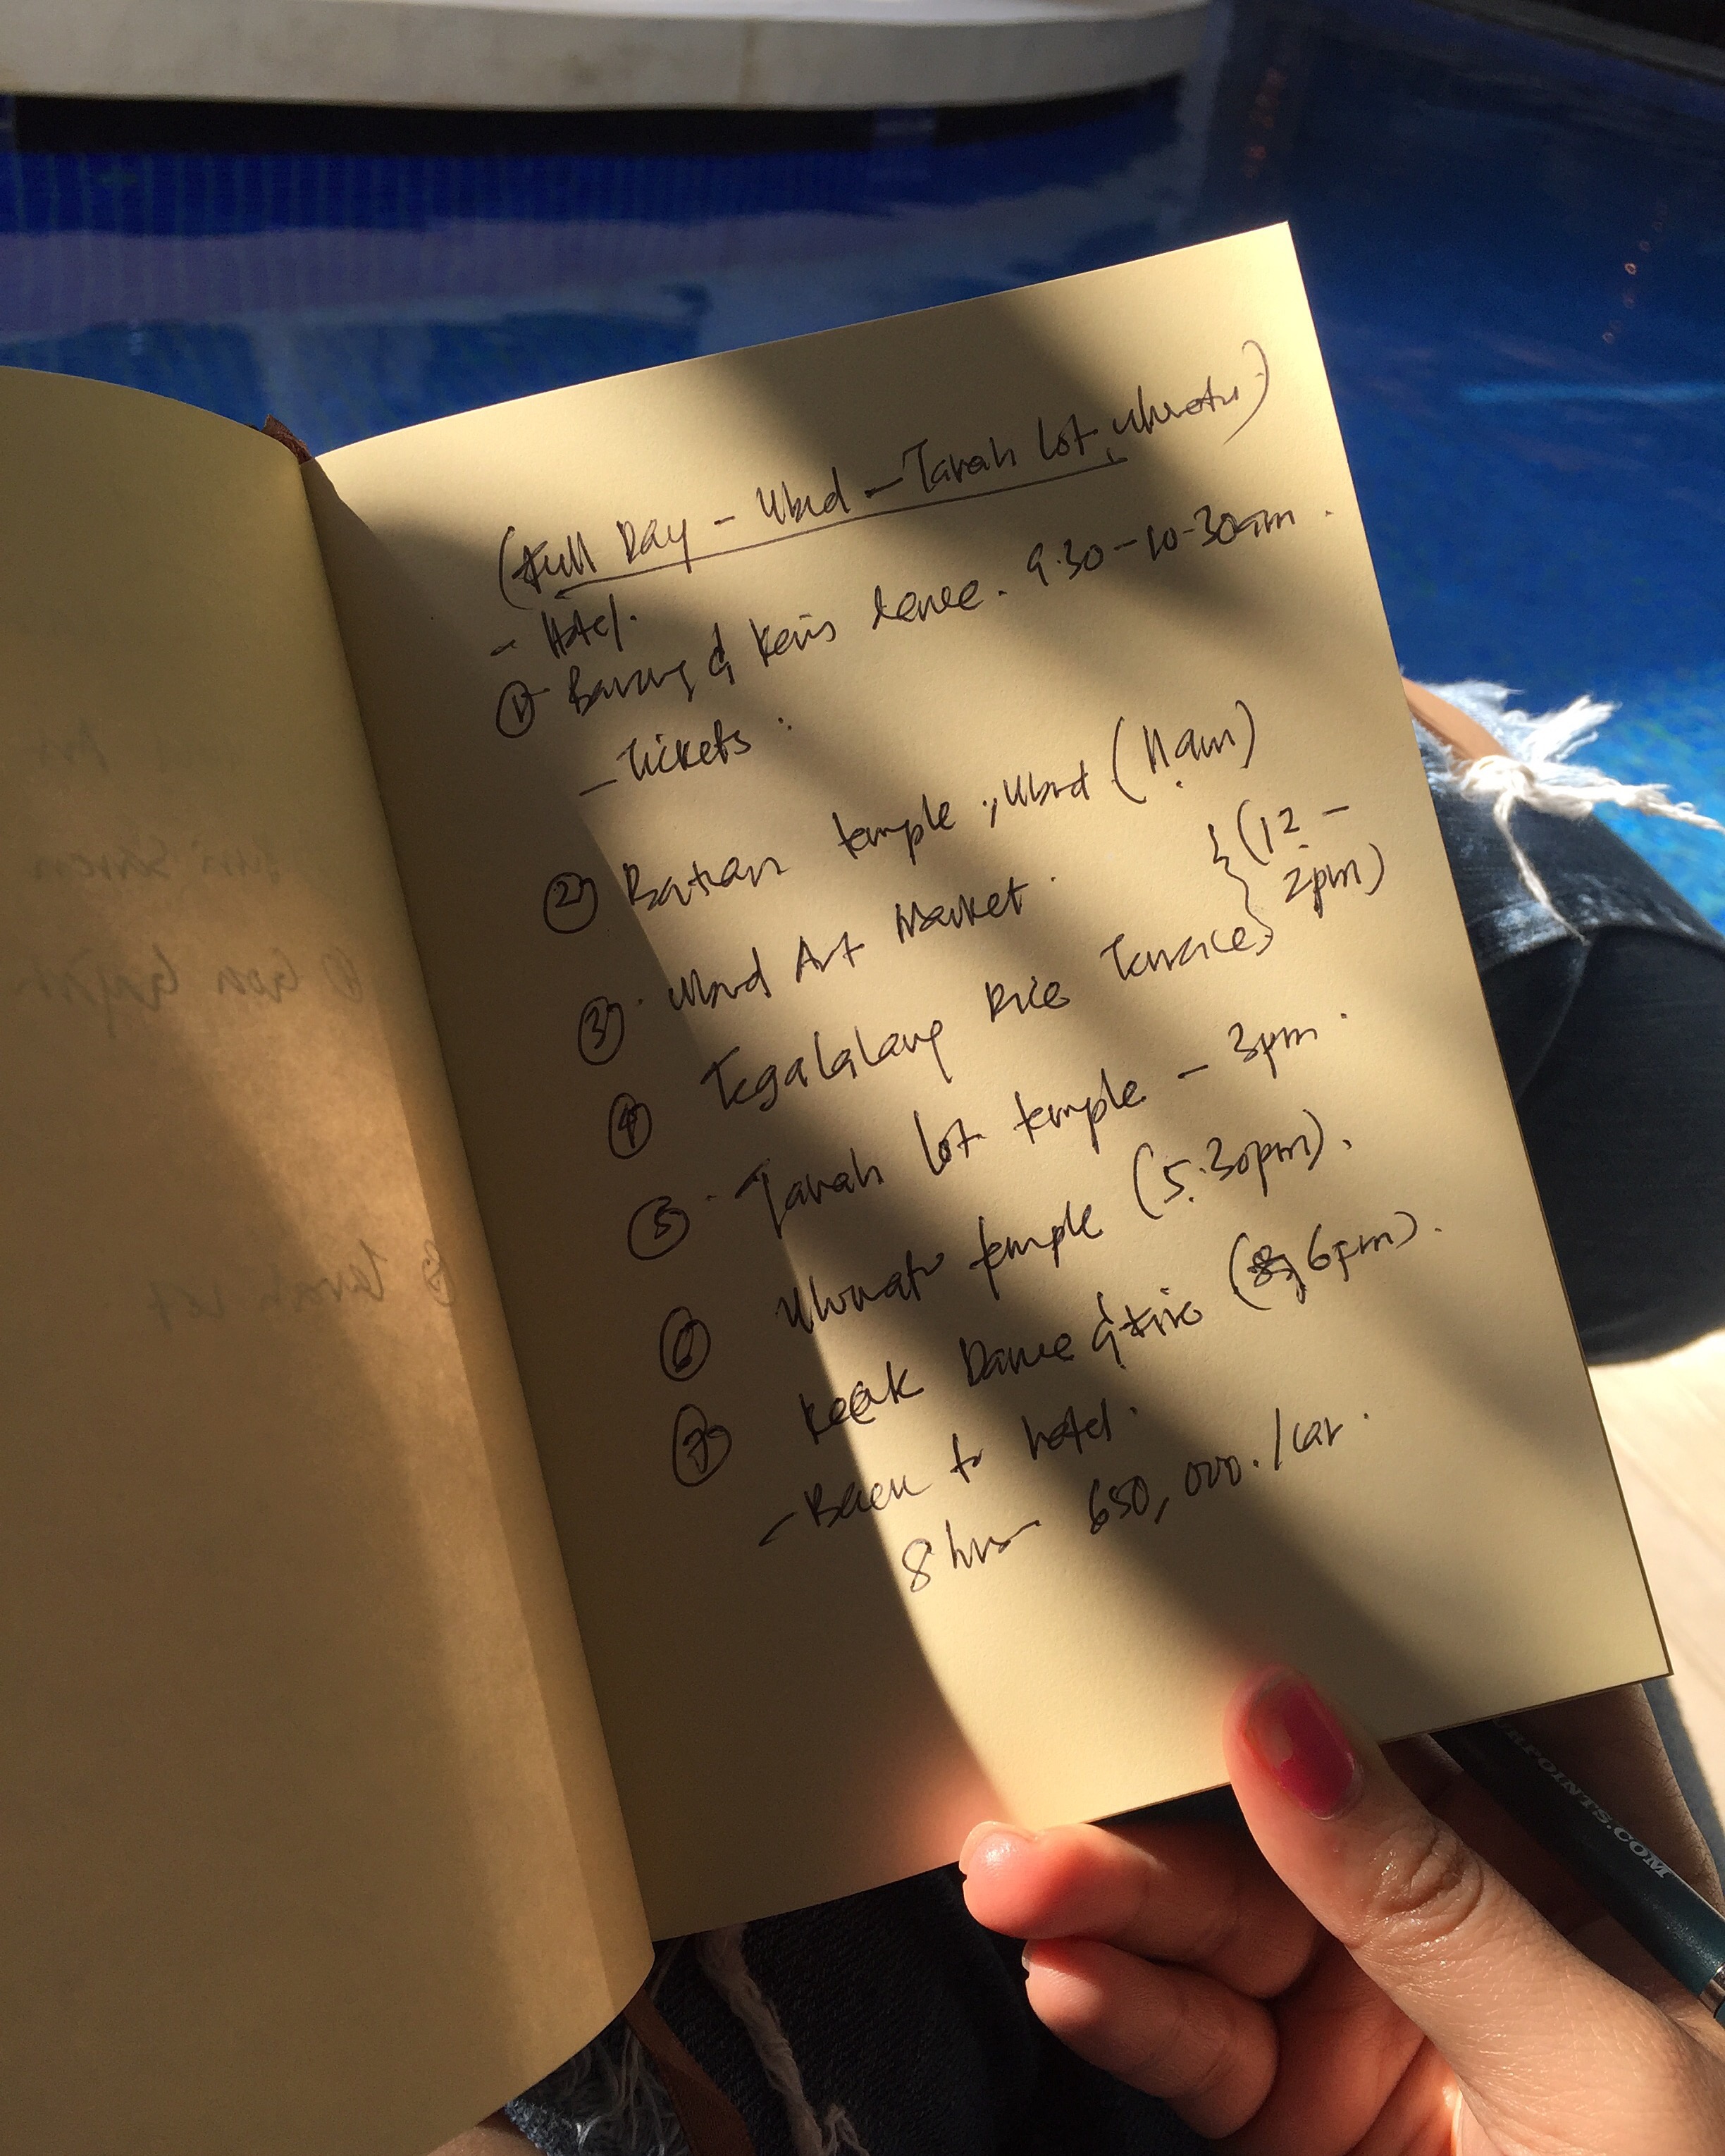 (Full Day - Ubud - Tanah Lot, Uluwatu)
- Hotel.
① Barong & Keris dance. 9.30 - 10.30am.
- Tickets :
② Batuan temple, Ubud (11am)
③ Ubud Art Market. } (12 -
④ Tegalalang Rice Terrace } 2pm)
⑤ Tanah Lot temple - 3pm.
⑥ Uluwatu temple (5.30pm).
⑦ Kecak Dance & Fire (6pm).
- Back to hotel.
8 hrs - 650,000./car.
⑤ Tanah Lot
POINTS.COM